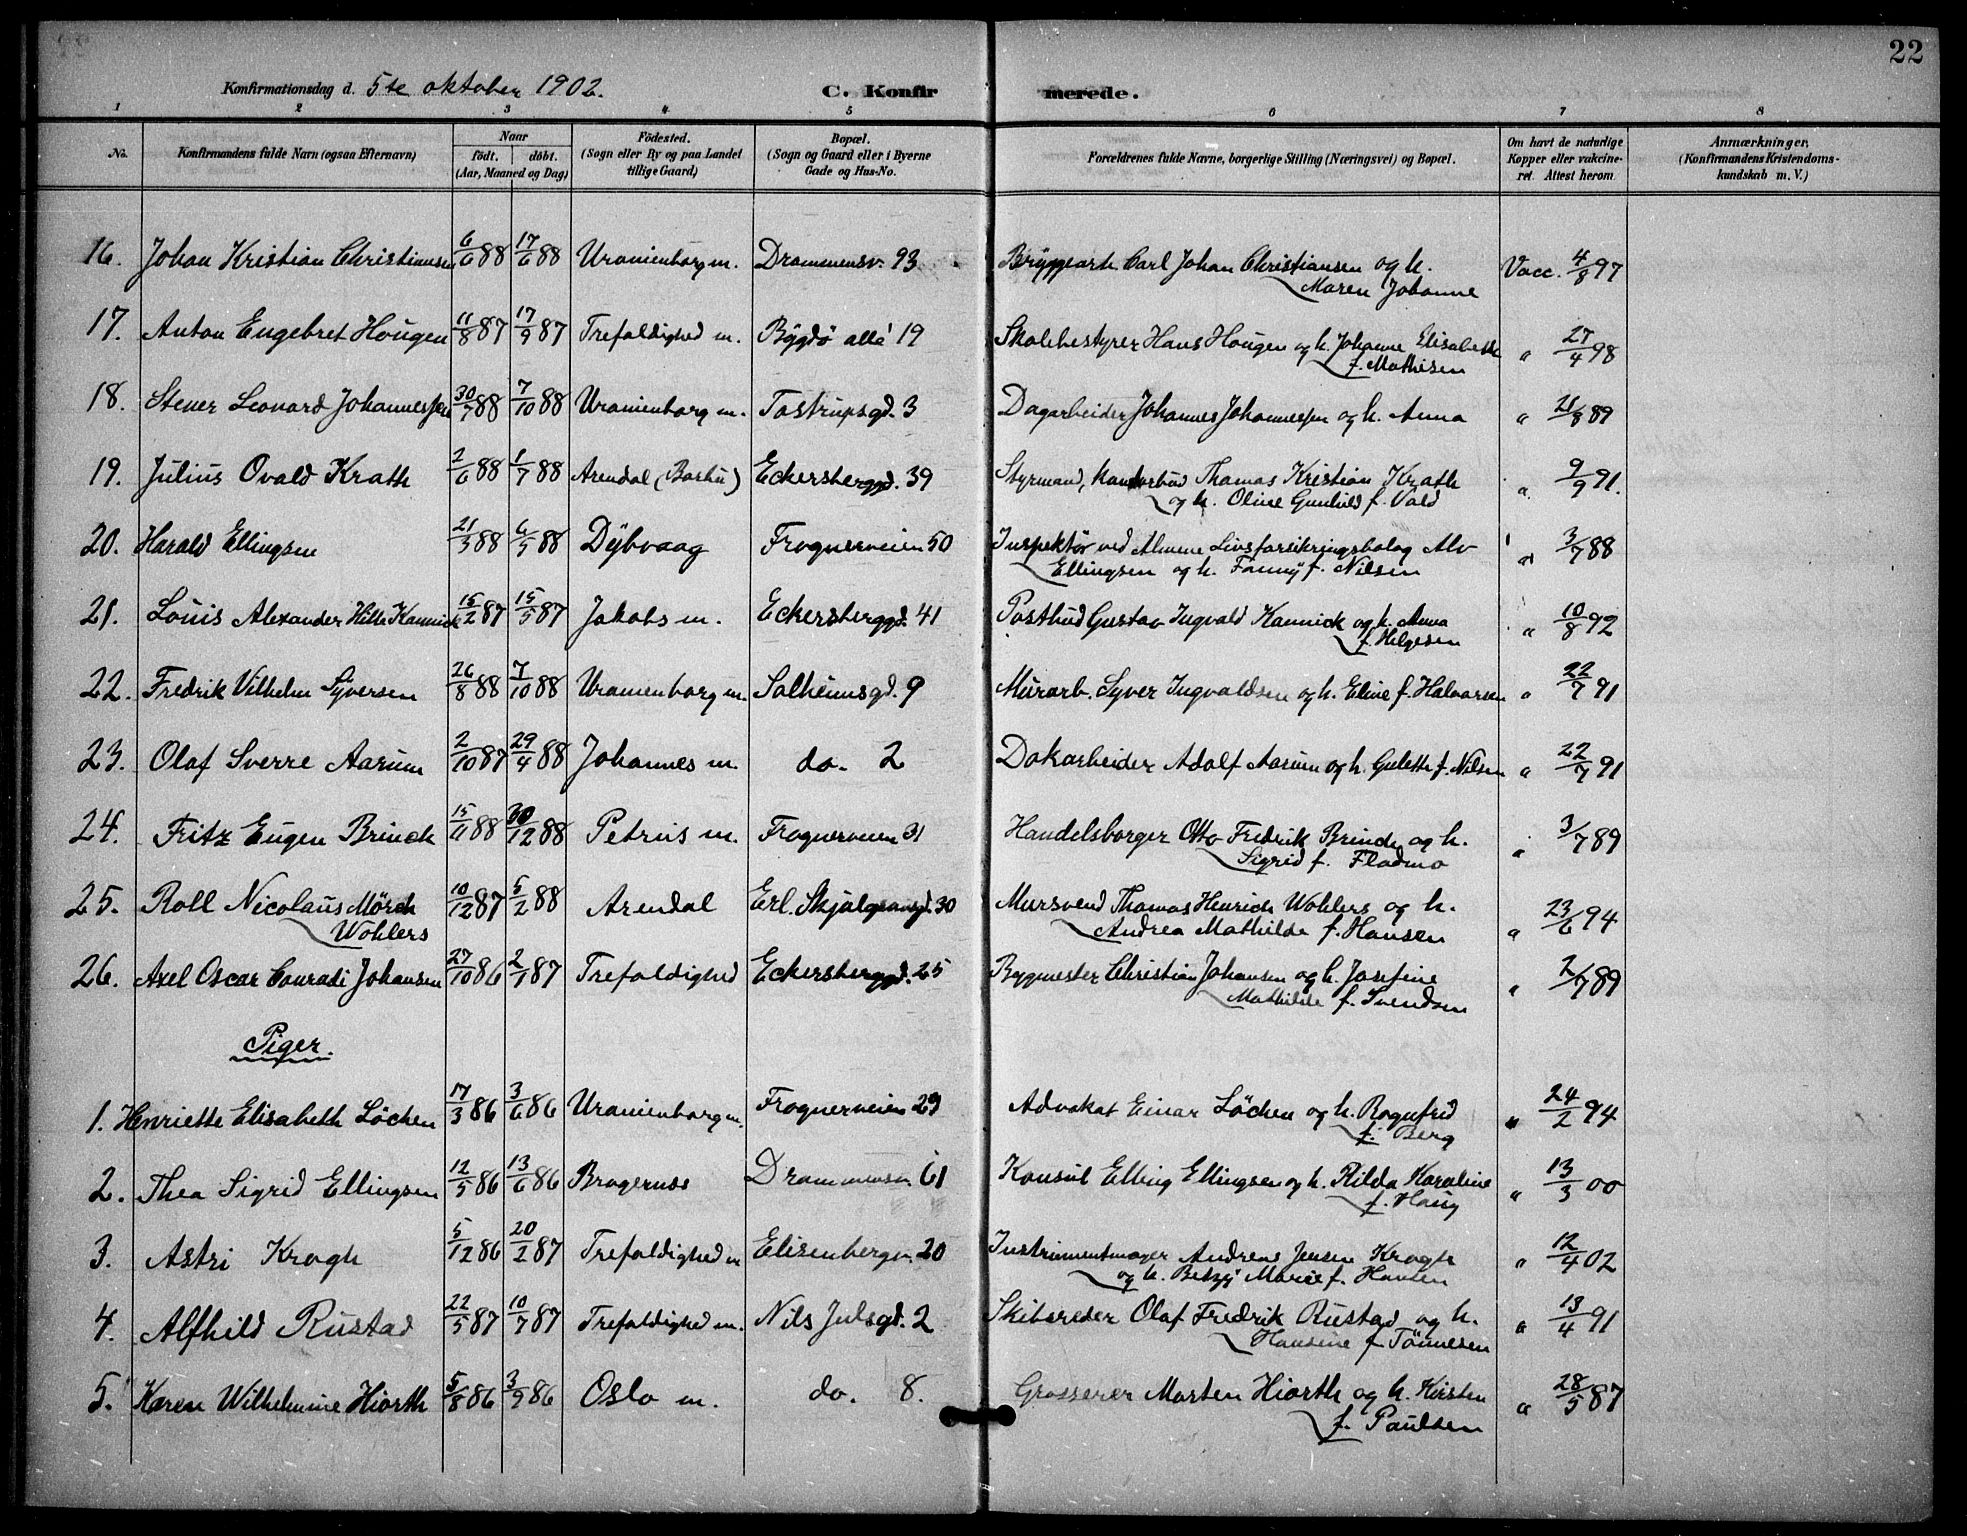 22
Konfirmationsdag d. 5te oktober 1902. C. Konfirmerede.
1 2 3 4 5 6 7 8
No. Konfirmandens fulde Navn (ogsaa Efternavn) Naar födt. döbt. (Aar, Maaned og Dag) Födested. (Sogn eller By og paa Landet tillige Gaard) Bopæl. (Sogn og Gaard eller i Byerne Gade og Hus-No. Forældrenes fulde Navne, borgerlige Stilling (Næringsvei) og Bopæl. Om havt de naturlige Kopper eller vakcineret. Attest herom Anmærkninger. (Konfirmandens Kristendomskundskab m. V.)
16. Johan Kristian Christiansen 6/6 88 17/6 88 Uranienborg m. Drammensv. 93 Bryggearb. Carl Johan Christiansen og h. Vacc. 4/8 97
Maren Johanne
17. Anton Engebret Hougen 11/8 87 17/9 87 Trefoldighed m. Bygdö allé 19 Skolebestyrer Hans Hougen og h. Johanne Elisabeth " 27/4 98
f. Mathisen
18. Stener Leonard Johannessen 30/7 88 7/10 88 Uranienborg m. Tostrupsgd. 3 Dagarbeider Johannes Johannessen og h. Anna " /8 89
19. Julius Ovald Krath 2/6 88 1/7 88 Arendal (Barbu) Eckersberggd. 39 Styrmand, kontorbud Thomas Kristian Krath " 9/9 91.
og h. Oline Gunhild f. Vold
20. Harald Ellingsen 21/3 88 6/5 88 Dybvaag Frognerveien 50 Inspektör ved Almene Livsforsikringsbolag Alv " 3/7 88
Ellingsen og h. Fanny f. Nilsen
21. Louis Alexander Hille Kannick 15/2 87 15/5 87 Jakobs m. Eckersberggd. 41 Postbud Gustav Ingvald Kannick og h. Anna " 10/8 92
f. Helgesen
22. Fredrik Vilhelm Syversen 26/8 88 7/10 88 Uranienborg m. Solheimsgd. 9 Murarb. Syver Ingvaldsen og h. Eline f. Halvorsen " 22/7 91
23. Olaf Sverre Aarum 2/10 87 29/4 88 Johannes m. do. 2 Dokarbeider Adolf Aarum og h. Gulette f. Nilsen " 22/7 91
24. Fritz Eugen Brinch 15/11 88 30/12 88 Petrus m. Frognerveien 31 Handelsborger Otto Fredrik Brinch og h. " 3/7 89
Sigrid f. Fladmo
25. Roll Nicolaus Mörch 10/12 87 5/2 88 Arendal Erl. Skjalgsønsgd. 30 Mursvend Thomas Henrich Wohlers og h. " 23/6 94
Wohlers Andrea Mathilde f. Hansen
26. Axel Oscar Conradi Johansen 27/10 86 2/1 87 Trefoldighed Eckersberggd. 25 Bygmester Christian Johansen og h. Josefine " 2/7 89
Mathilde f. Svendsen
Piger.
1. Henriette Elisabeth Löchen 17/3 86 3/6 86 Uranienborg m. Frognerveien 29 Advokat Einar Löchen og h. Ragnfrid " 24/2 94
f. Berg
2. Thea Sigrid Ellingsen 12/5 86 13/6 86 Bragernes Drammensv. 61 Konsul Elling Ellingsen og h. Hilda Karoline " 13/3 00
f. Haug
3. Astri Krogh 5/12 86 20/2 87 Trefoldighed m Elisenbergv. 20 Instrumentmager Andreas Jensen Krogh " 12/4 02
og h. Betzy Marie f. Hansen
4. Alfhild Rustad 22/5 87 10/7 87 Trefoldighed m. Nils Julsgd. 2 Skibsreder Olaf Fredrik Rustad og h. " 13/4 91
Hansine f. Tönnesen
5. Karen Wilhelmine Hiorth 5/8 86 3/9 86 Oslo m. do. 8. Grosserer Morten Hiorth og h. Kirsten " 28/5 87
f. Paulsen